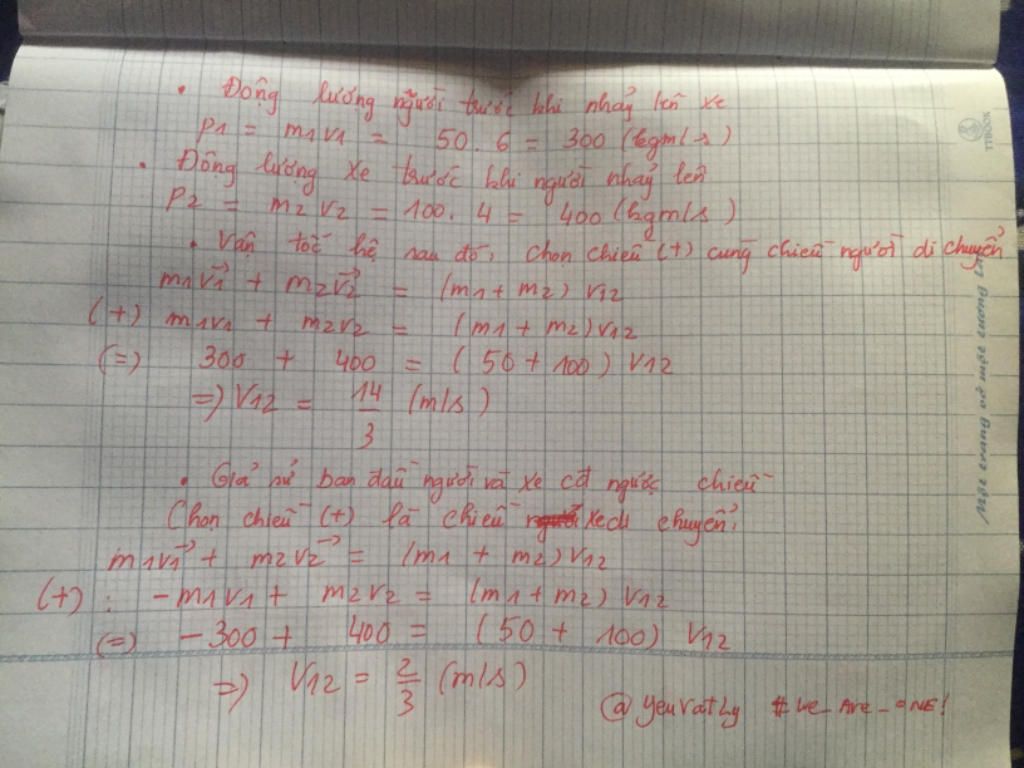 • Động lượng người trước khi nhảy lên xe
P1 = m1v1 = 50.6 = 300 (kgm/s)
• Động lượng xe trước khi người nhảy lên
P2 = m2v2 = 100.4 = 400 (kgm/s)
• Vận tốc hệ sau đó, chọn chiều (+) cùng chiều người di chuyển
m1v1→ + m2v2→ = (m1 + m2) v12
(+) m1v1 + m2v2 = (m1 + m2) v12
(=) 300 + 400 = (50 + 100) v12
=> V12 = 14/3 (m/s)
• Giả sử ban đầu người và xe cđ ngược chiều
Chọn chiều (+) là chiều xe di chuyển,
m1v1→ + m2v2→ = (m1 + m2) v12
(+) : -m1v1 + m2v2 = (m1 + m2) v12
(=) -300 + 400 = (50 + 100) v12
=> V12 = 2/3 (m/s)
@yeuvatly #We_Are_oNE!
TTBOOK
Một trang vở một tương